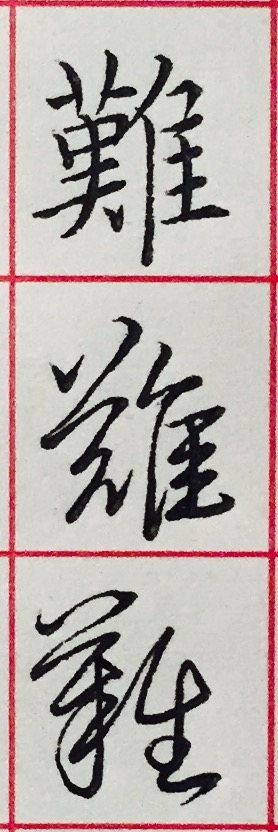 難
難
難